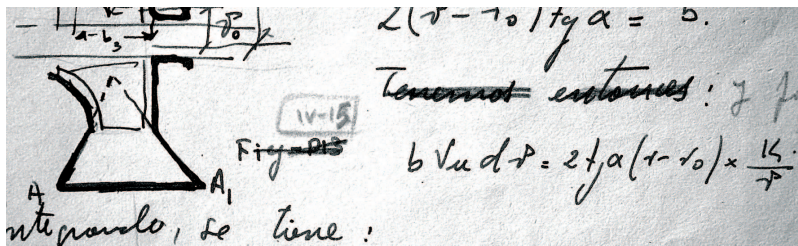 a-b₃
2(r-r₀) tg α = b.
Tenemos entonces : y
IV-15
Fig-
b Vu dr = 2 tg α (r-r₀) × K/r
A A₁
ntegrando, se tiene :